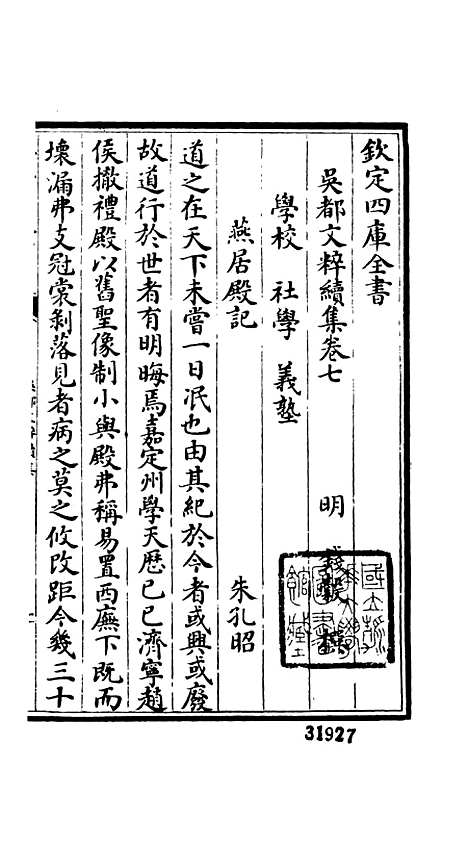 欽定四庫全書
吳都文粹續集卷七
明 錢穀 撰
學校 社學 義塾
燕居殿記
朱孔昭
道之在天下未嘗一日泯也由其紀於今者或興或廢
故道行於世者有明晦焉嘉定州學天厯己巳濟寧趙
侯撤禮殿以舊聖像制小與殿弗稱易置西廡下既而
壊漏弗支冠裳剝落見者病之莫之攸改距今幾三十
31927